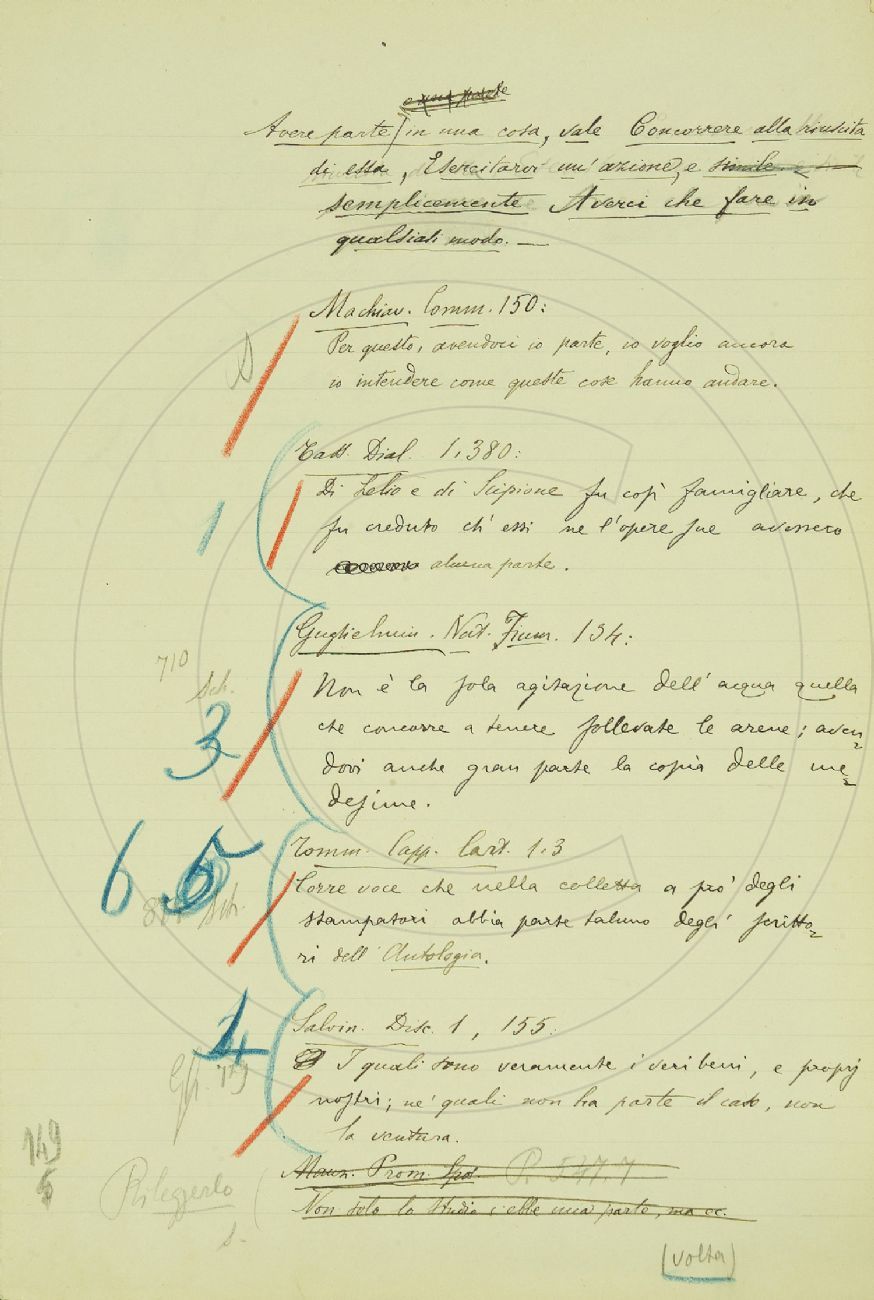 e una parte
Avere parte in una cosa, vale Concorrere alla riuscita
di essa, Esercitarvi un' azione, e simile. e
semplicemente Averci che fare in
qualsiasi modo. —
Machiav. Comm. 150:
Per questo, avendoci io parte, io voglio ancora
io intendere come queste cose hanno andare.
S
Tass. Dial. 1. 380:
Di Lelio e di Scipione fu così famigliare, che
1
fu creduto ch' essi ne l'opere sue avessero
alcuna parte.
Guglielmin. Nat. Fium. 134:
710
Sch.
Non è la sola agitazione dell' acqua quella
che concorre a tenere sollevate le arene; aven=
3
dovi anche gran parte la copia delle me=
desime.
Tomm. Capp. Cart. 1. 3
6. 5
Corre voce che nella colletta a prò degli
Sch.
stampatori abbia parte taluno degli scritto=
ri dell' Antologia.
Salvin. Disc. 1, 155:
4
I quali sono veramente i veri beni, e proprj
nostri; ne' quali non ha parte il caso, non
la ventura.
149
6
Manz. Prom. Spos. P. 547. 7
Rileggerlo
Non solo lo studio c' ebbe una parte, ma ec.
S.
(volta)